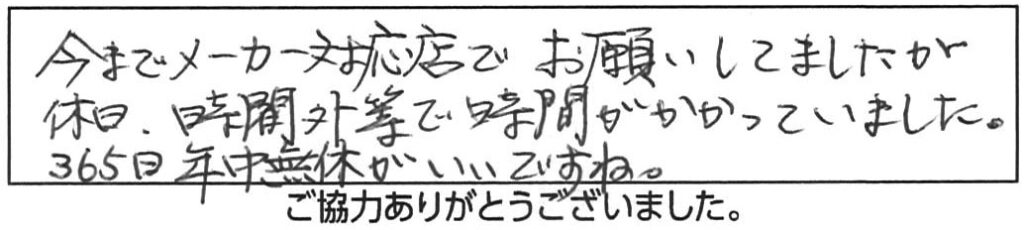 今までメーカー対応店でお願いしてましたが
休日、時間外等で時間がかかっていました。
365日年中無休がいいですね。
ご協力ありがとうございました。